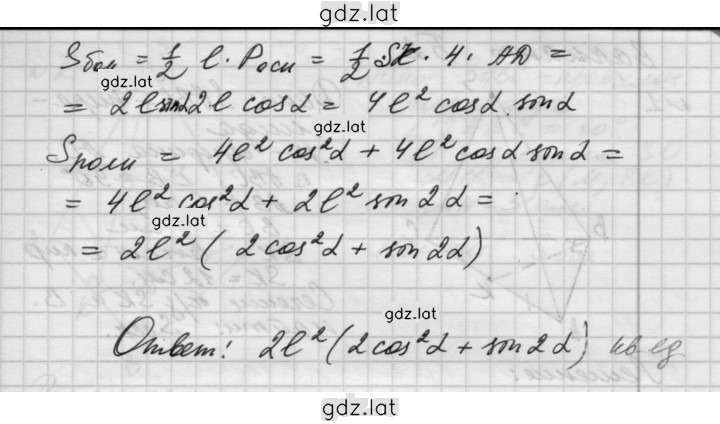 gdz.lat
Sбок = 1/2 l · Pосн = 1/2 SK · 4 · AD =
gdz.lat
= 2l sinα 2l cosα = 4l² cosα sinα
gdz.lat
Sполн = 4l² cos²α + 4l² cosα sinα =
= 4l² cos²α + 2l² sin 2α =
gdz.lat
= 2l² ( 2cos²α + sin2α)
gdz.lat
Ответ: 2l² (2cos²α + sin2α) кв ед
gdz.lat